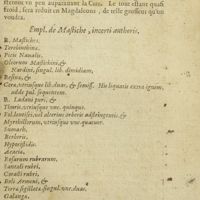 froid, sera reduit en Magdaleons, de telle grosseur qu'on
voudra.
Empl. de Mastiche, incerti authoris.
R. Mastiches.
Terebinthina.
Picis Naualis.
Oleorum Mastichini, &
Nardini, singul. lib. dimidiam.
Resinæ, &
Ceræ, vtriusque lib. duas, & semiss. His liquatis extra ignem,
adde pul. sequentem.
R. Ladani puri, &
Thuris, vtriusque vnc. quinque.
Fol. lentisci, vel alterius arboris adstringentis, &
Myrthillorum, vtriusque vnc. quatuor.
Sumach,
Berberis.
Hypocistidis.
Acaciæ.
Rosarum rubrarum.
Santali rubri.
Coralli rubri.
Boli Armeni, &
Terræ sigillatæ, singul. vnc. duas.
Galanga.